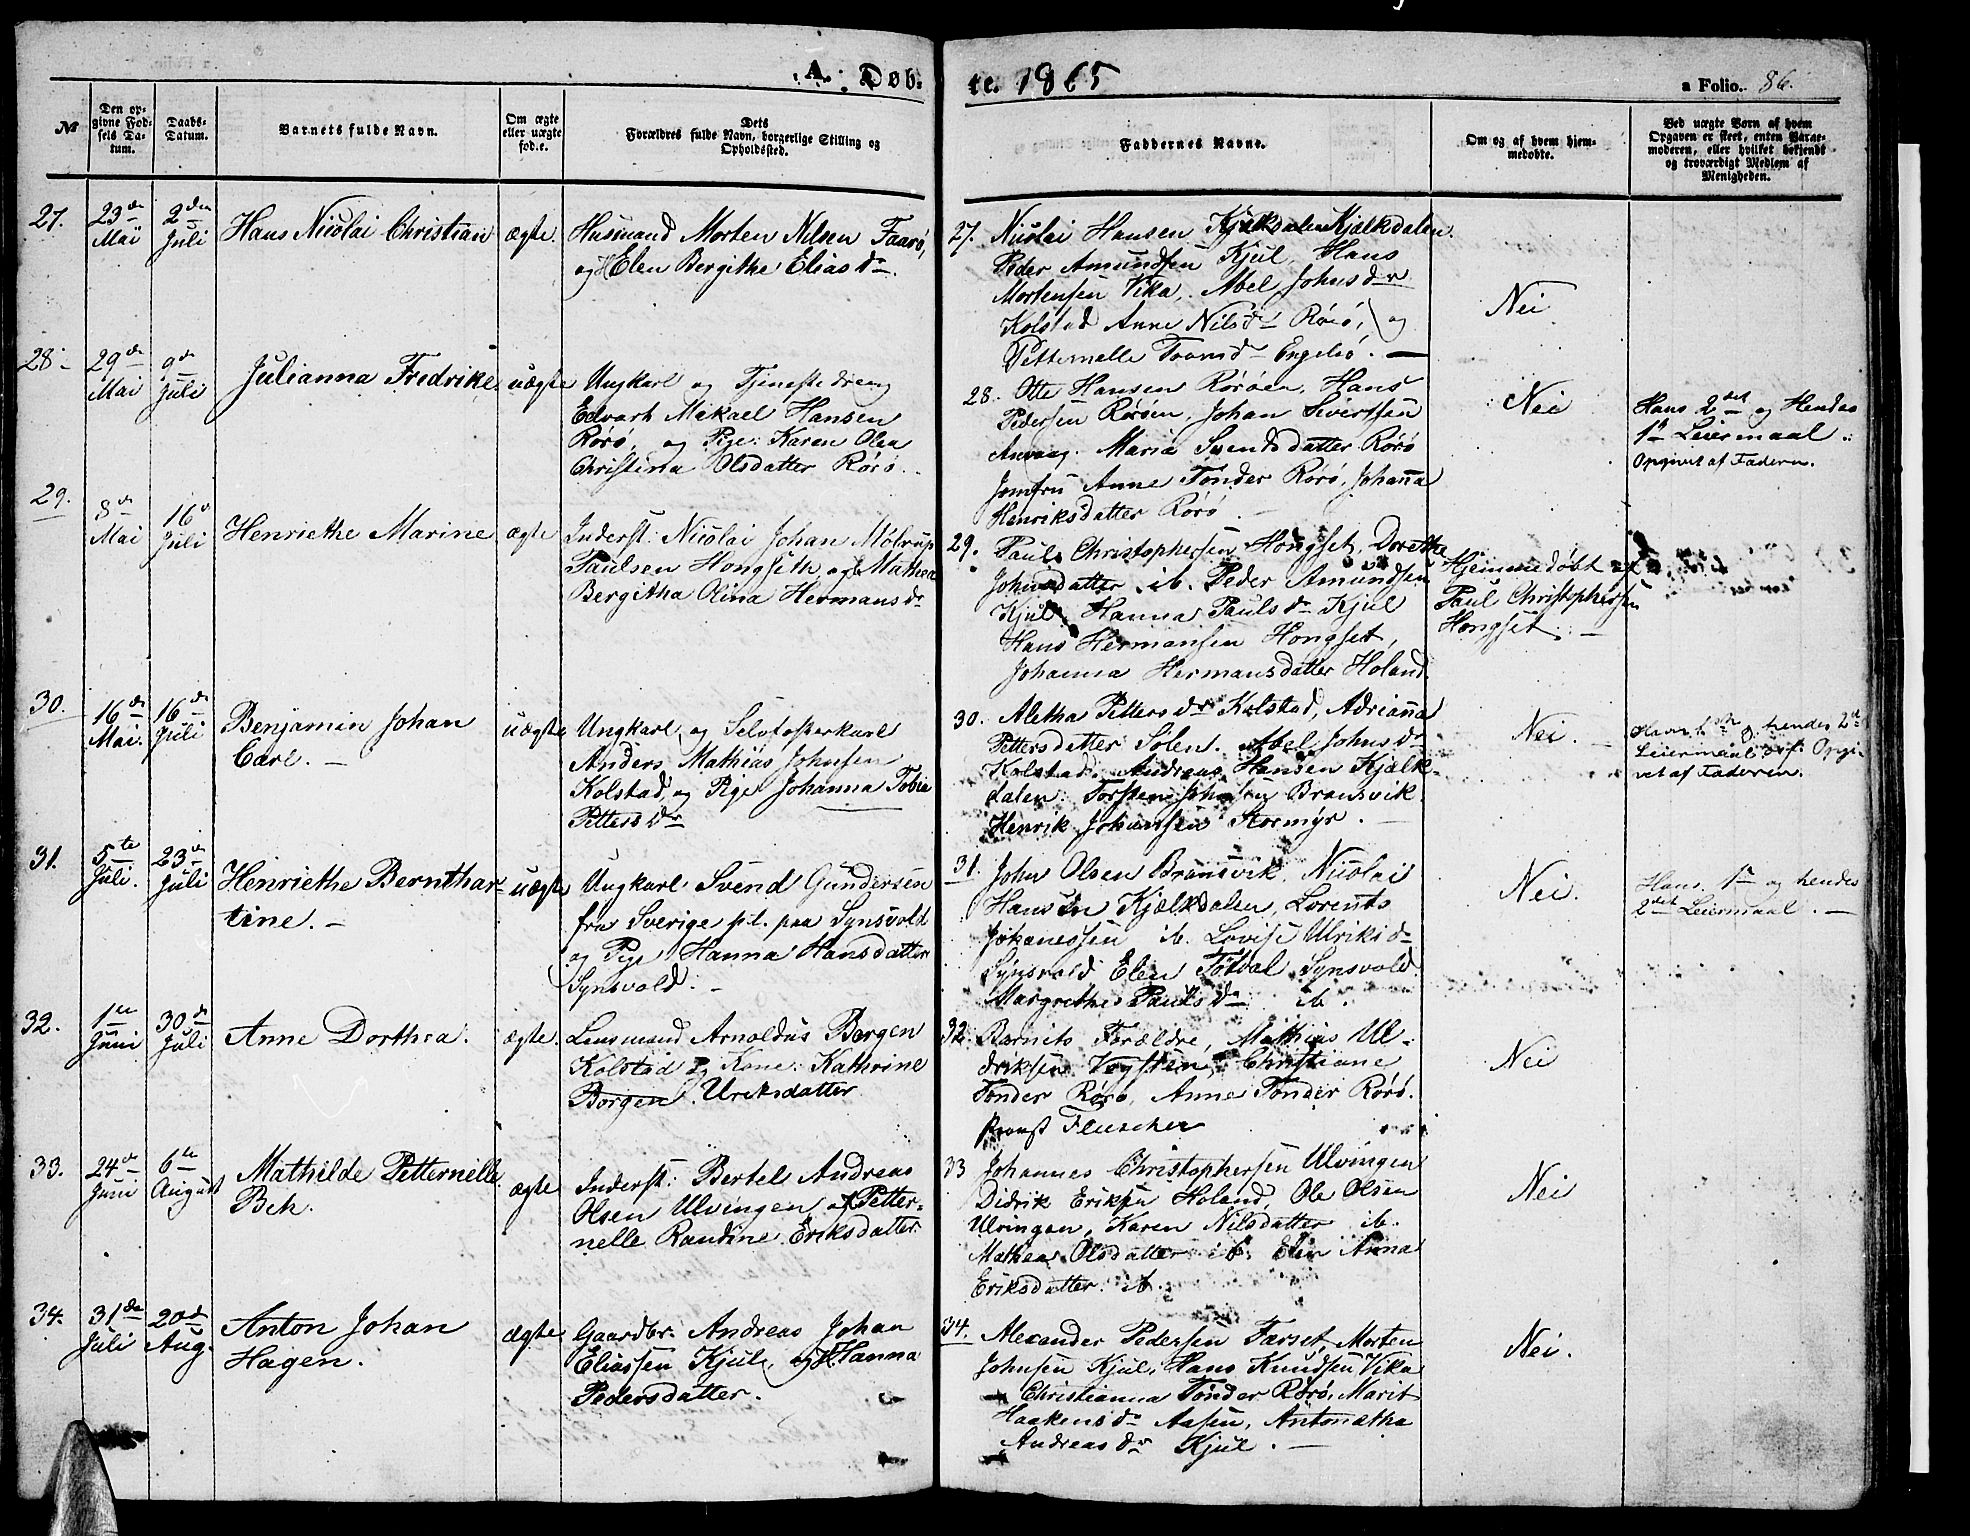 A. Døb-
te. 1865
a Folio. 86.
№
Den op-
givne Fød-
sels Da-
tum.
Daabs-
Datum.
Barnets fulde Navn.
Om ægte
eller uægte
fød.e.
Dets
Forældres fulde Navn, borgerlige Stilling og
Opholdssted.
Faddernes Navne.
Om og af hvem hjem-
medøbte.
Ved uægte Børn af hvem
Opgaven er skeet, enten Barne-
moderen, eller hvilket bekjendt
og troværdigt Medlem af
Menigheden.
27.
23de
Mai
2den
Juli
Hans Nicolai Christian
ægte.
Husmand Morten Nilsen Faarø,
og Elen Bergithe Elias Dr.
27. Nicolai Hansen Kjælkdalen.
Peder Amundsen Kjul, Hans
Mortensen Vika, Abel Johnsdr
Kolstad Anne Nilsdr Rørø, og
Petternelle Tromsdr Engelsø. —
Nei
28.
29de
Mai
9de
Juli
Julianna Fredrike
uægte
Ungkarl og Tjenestedreng
Edvart Mikael Hansen
Rørø, og Pige: Karen Olea
Christina Olsdatter Rørø.
28. Otte Hansen Rørøen, Hans
Pedersen Rørøen, Johan Sivertsen
Anvaag. Maria Svendsdatter Rørø
Jomfru Anne Tønder Rørø, Johanna
Henriksdatter Rørø.
Nei
Hans 2det og Hendes
1te Leiermaal.
Opgivet af Faderen.
29.
8de
Mai
16de
Juli
Henriethe Marine
ægte
Inderst: Nicolai Johan Møtrup
Paulsen Hongseth og Mathea
Bergitha Olina Hermansdr
29. Paul Christophersen Hongset, Dorethe
Johnsdatter ib. Peder Amundsen
Kjul, Hanna Paulsdr Kjul
Hans Hermansen Hongset,
Johanna Hermansdatter Holand.
Hjemmedøbt af
Paul Christophersen
Hongset. —
30.
16de
Mai.
16de
Juli
Benjamin Johan
Carl. —
uægte
Ungkarl og Selvfosterkarl
Anders Mathias Johnsen
Kolstad, og Pige Johanna Tobia
Pettersdr
30. Aletha Pettersdr Kolstad, Adrianna
Pettersdatter Sølen. Abel Johnsdr
Kolstad. Andreas Hansen Kjælk-
dalen: Torsten Johnsen Brønsvik.
Henrik Johansen Stormyr. —
Nei. —
Hans 1ste og hendes 2det
Leiermaal. Opgi-
vet af Faderen.
31.
5te
Juli.
23de
Juli
Henriethe Bernthar-
tine. —
uægte
Ungkarl Svend Gundersen
fra Sverige p.t. paa Synsvold
og Pige Hanna Hansdatter
Synsvold. —
31. John Olsen Brønsvik, Nicolai
Hansen Kjælkdalen, Lorents
Johanessen ib. Lovise Ulriksdr
Synsvold Elen Totdal Synsvold.
Margrethe Paulsdr ib.
Nei.
Hans 1te og hendes
2det Leiermaal. —
32.
1te
Juni
30de
Juli
Anne Dorthea.
ægte.
Lensmand Arnoldus Borgen
Kolstad og Kone: Kathrine
Borgen. Ulriksdatter
32. Barnets Forældre, Mathias Ul-
driksen Vegsten, Christiane
Tønder Rørø, Anne Tønder Rørø.
Provst Fleischer
Nei
33.
24de
Juni
6te
August
Mathilde Petternelle
Bek.
ægte
Inderst: Bertel Andreas
Olsen Ulvingen og Petter-
nelle Randine Eriksdatter
33 Johannes Christophersen Ulvingen
Didrik Eriksen Holand, Ole Olsen
Ulvingen, Karen Nilsdatter ib.
Mathea Olsdatter ib. Elen Anna
Eriksdatter. ib.
Nei
34.
31de
Juli
20de
Aug.
Anton Johan
Hagen.
ægte
Gaardbr. Andreas Johan
Eliassen Kjul, og Hanna
Pedersdatter.
34. Alexander Pedersen Færset, Morten
Johnsen Kjul, Hans Knudsen Vika
Christianna Tønder Rørø, Marit
Haakensdr Aasen, Antonetha
Andreasdr Kjul. —
Nei.